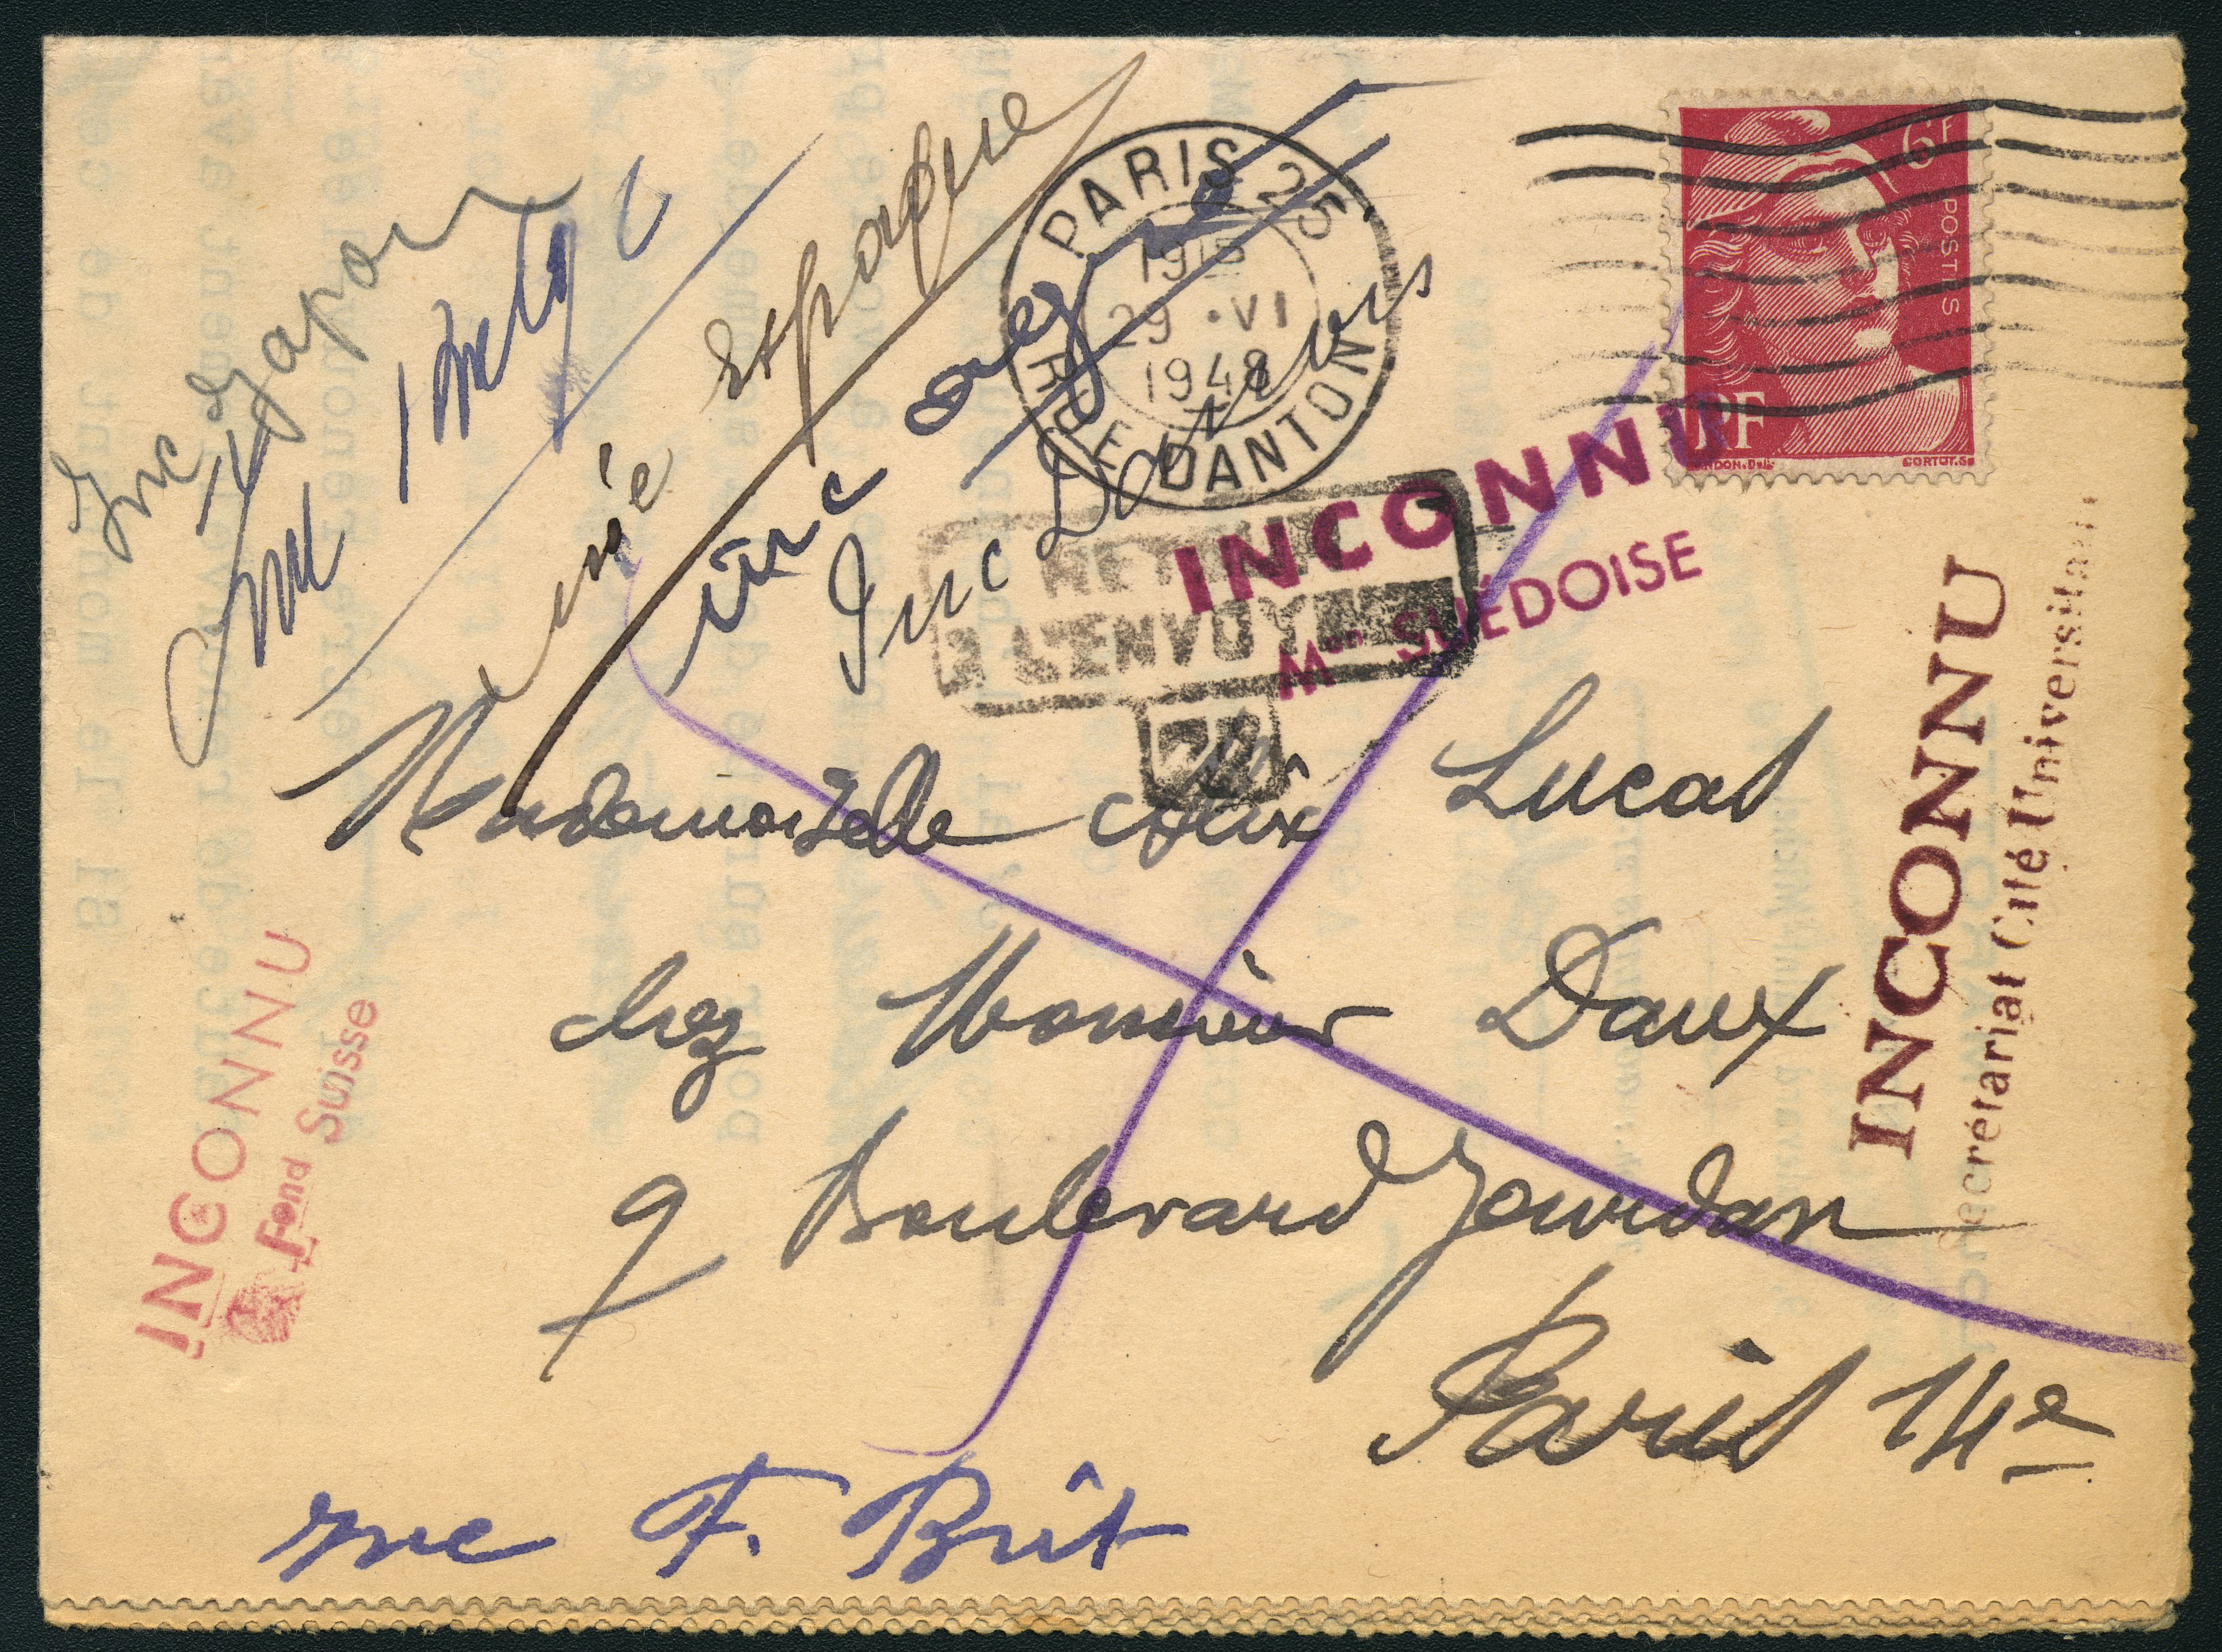 6F
POSTES
RF
CORTOT.SC
PARIS 25
RUE DANTON
1915
29 · VI
1948
Inc Japon
Inc Belg
inc Espagne
inc Argne
Inc Danois
INCONNU
Mon SUÉDOISE
RETOUR
A L'ENVOYEUR
INCONNU
Secrétariat Cité Universitaire
INCONNU
Fond Suisse
Mademoiselle Alix Lucas
chez Monsieur Daux
9 Boulevard Jourdan
Paris 14e
inc F. Brit